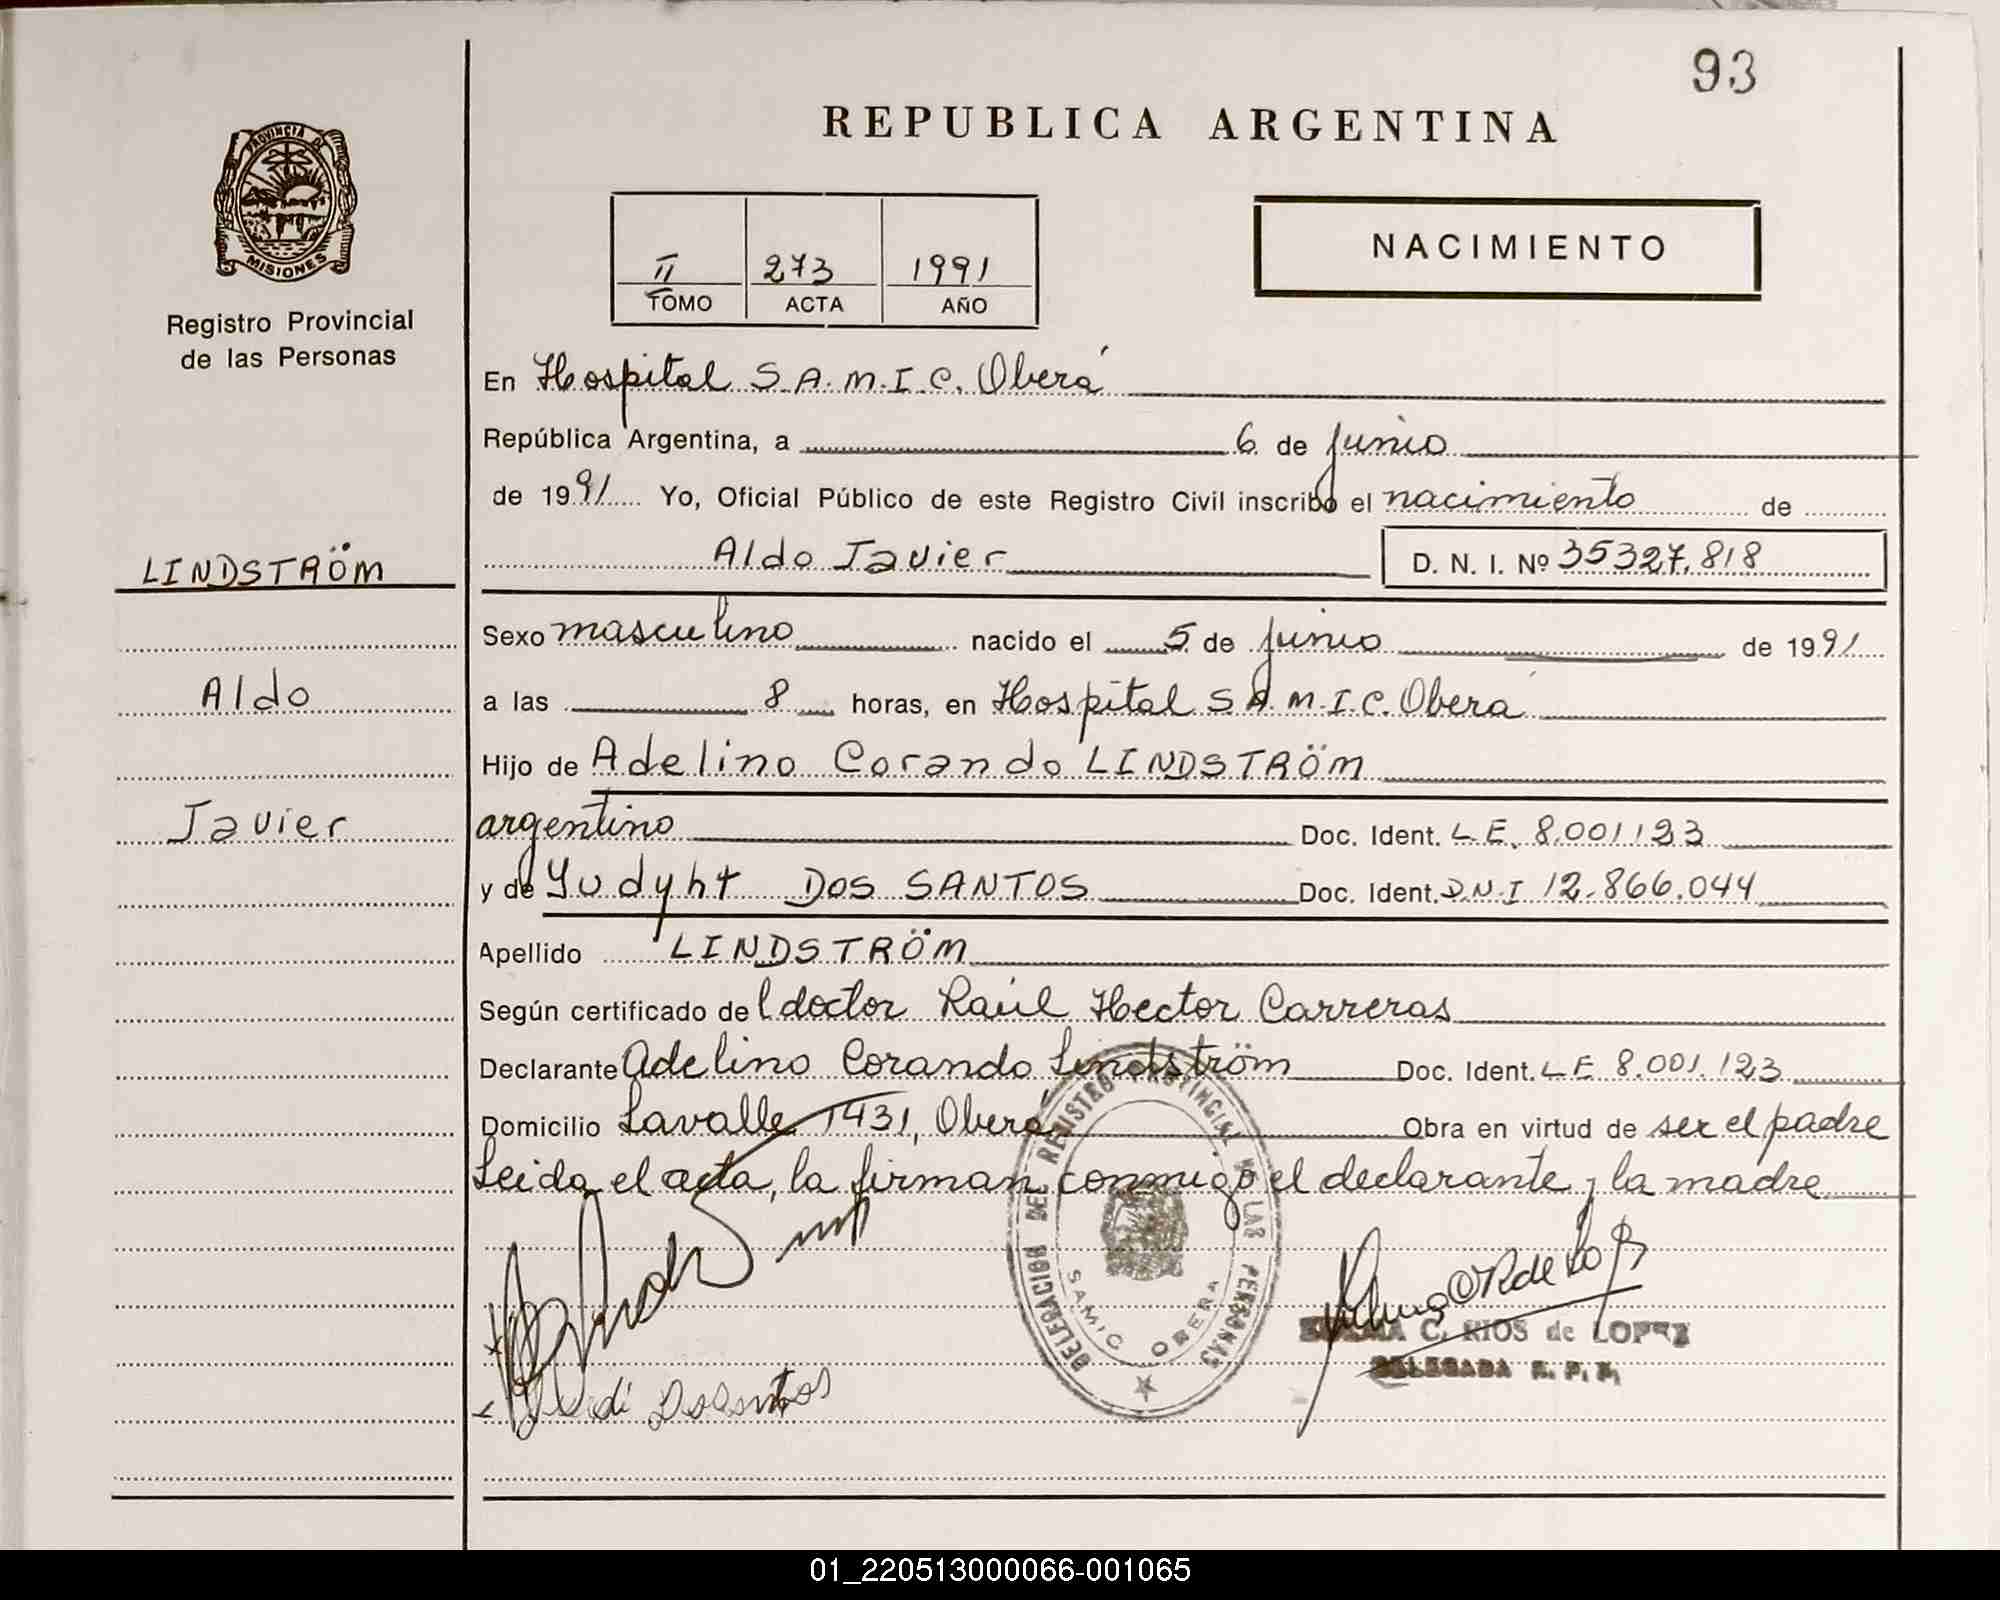 93
REPUBLICA ARGENTINA
PROVINCIA DE
MISIONES
Registro Provincial
de las Personas
II 273 1991
TOMO ACTA AÑO
NACIMIENTO
En Hospital S.A.M.I.C. Oberá
República Argentina, a 6 de junio
de 1991 Yo, Oficial Público de este Registro Civil inscribo el nacimiento de
Aldo Javier D. N. I. Nº 35327.818
LINDSTRÖM
Aldo
Javier
Sexo masculino nacido el 5 de junio de 1991
a las 8 horas, en Hospital S.A.M.I.C. Oberá
Hijo de Adelino Corando LINDSTRÖM
argentino Doc. Ident. L.E. 8.001123
y de Yudyht DOS SANTOS Doc. Ident. D.N.I 12.866.044
Apellido LINDSTRÖM
Según certificado del doctor Raúl Hector Carreras
Declarante Adelino Corando Lindström Doc. Ident. LE 8.001.123
Domicilio Lavalle 1431, Oberá Obra en virtud de ser el padre
Leida el acta, la firman conmigo el declarante y la madre
DELEGACION DEL REGISTRO PROVINCIAL DE LAS PERSONAS
SAMIC OBERA
C. RIOS de LOPEZ
DELEGADA R. P. P.
01_220513000066-001065